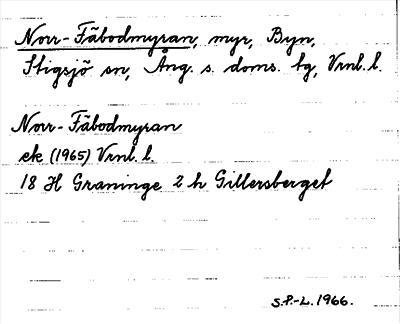 Norr-Fäbodmyran, myr, Byn,
Stigsjö sn, Ång. s. doms. tg, Vrnl. l.
Norr-Fäbodmyran
ek (1965) Vrnl. l.
18 H Graninge 2 h Gillersberget
S.P.-L. 1966.